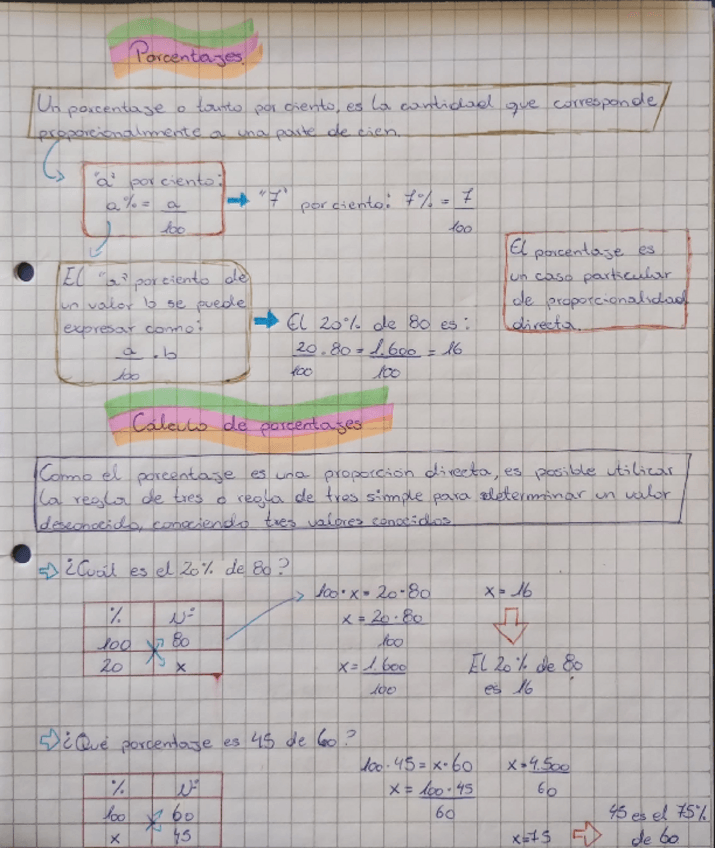 Porcentajes
Un porcentaje o tanto por ciento, es la cantidad que corresponde
proporcionalmente a una parte de cien.
"a" por ciento:
a% = a/100
"7" por ciento: 7% = 7/100
El porcentaje es
un caso particular
de proporcionalidad
directa.
El "a" por ciento de
un valor b se puede
expresar como:
a/100 · b
El 20% de 80 es:
20/100 . 80 = 1.600/100 = 16
Cálculo de porcentajes
Como el porcentaje es una proporción directa, es posible utilizar
la regla de tres o regla de tres simple para determinar un valor
desconocido, conociendo tres valores conocidos
¿Cuál es el 20% de 80?
% Nº
100 80
20 x
100 · x = 20 · 80
x = 20 · 80/100
x = 1.600/100
x = 16
El 20% de 80
es 16
¿Qué porcentaje es 45 de 60?
% Nº
100 60
x 45
100 · 45 = x · 60
x = 100 · 45/60
x = 4.500/60
x = 75
45 es el 75%
de 60